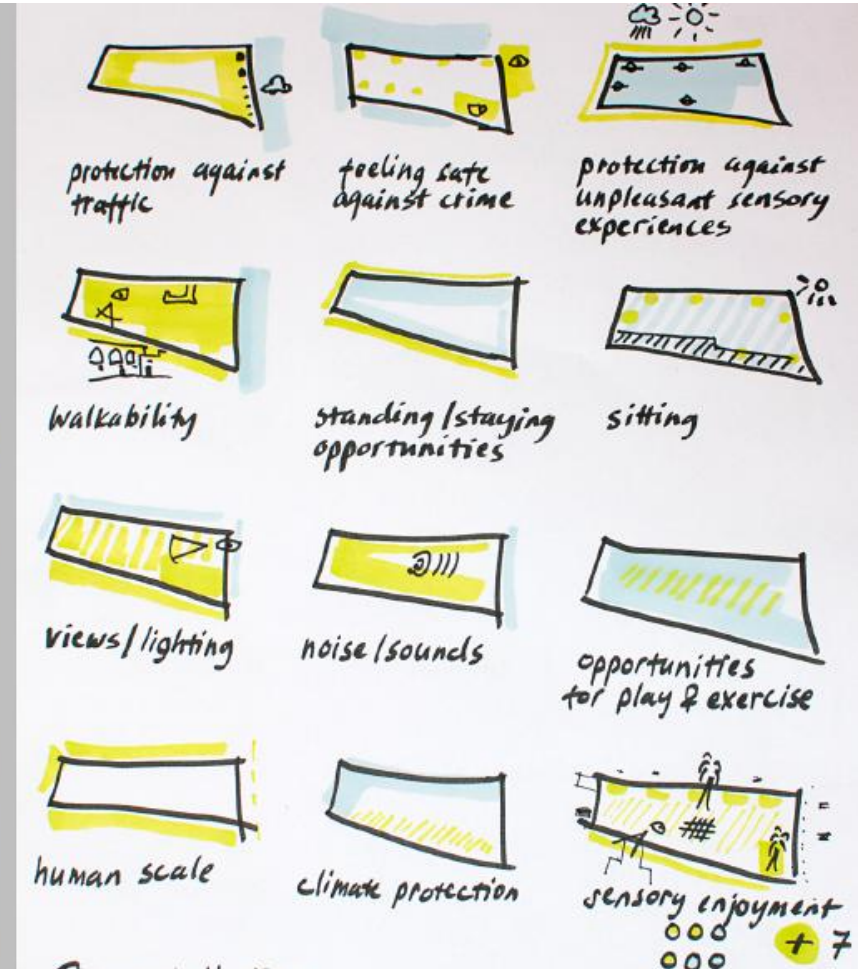 protection against
traffic
feeling safe
against crime
protection against
unpleasant sensory
experiences
walkability
standing/staying
opportunities
sitting
views/lighting
noise/sounds
opportunities
for play & exercise
human scale
climate protection
sensory enjoyment
+ 7